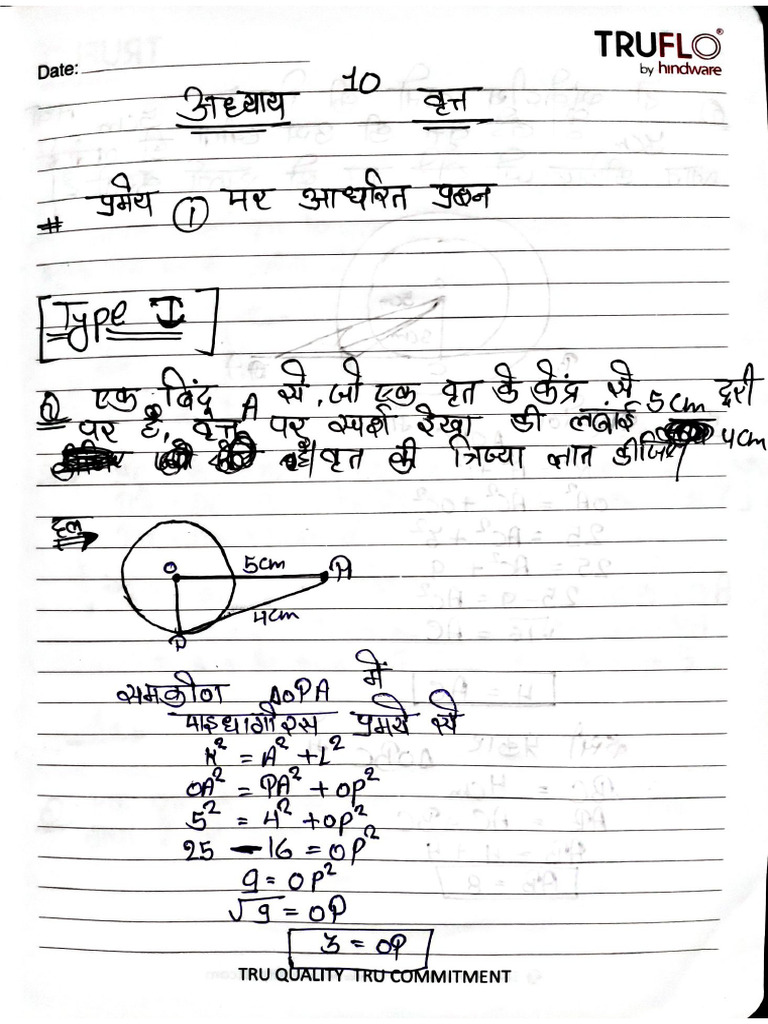 TRUFLO
by hindware
Date:
अध्याय 10 वृत्त
# प्रमेय ① पर आधारित प्रश्न
Type I
Q एक बिंदु A से, जो एक वृत के केंद्र से 5cm दूरी
पर है, वृत्त पर स्पर्श रेखा की लंबाई 4cm
है। वृत की त्रिज्या ज्ञात कीजिए
हल
O 5cm A
4cm
P
समकोण ΔOPA में
पाइथागोरस प्रमये से
K² = A² + L²
OA² = PA² + OP²
5² = 4² + OP²
25 - 16 = OP²
9 = OP²
√9 = OP
3 = OP
TRU QUALITY TRU COMMITMENT